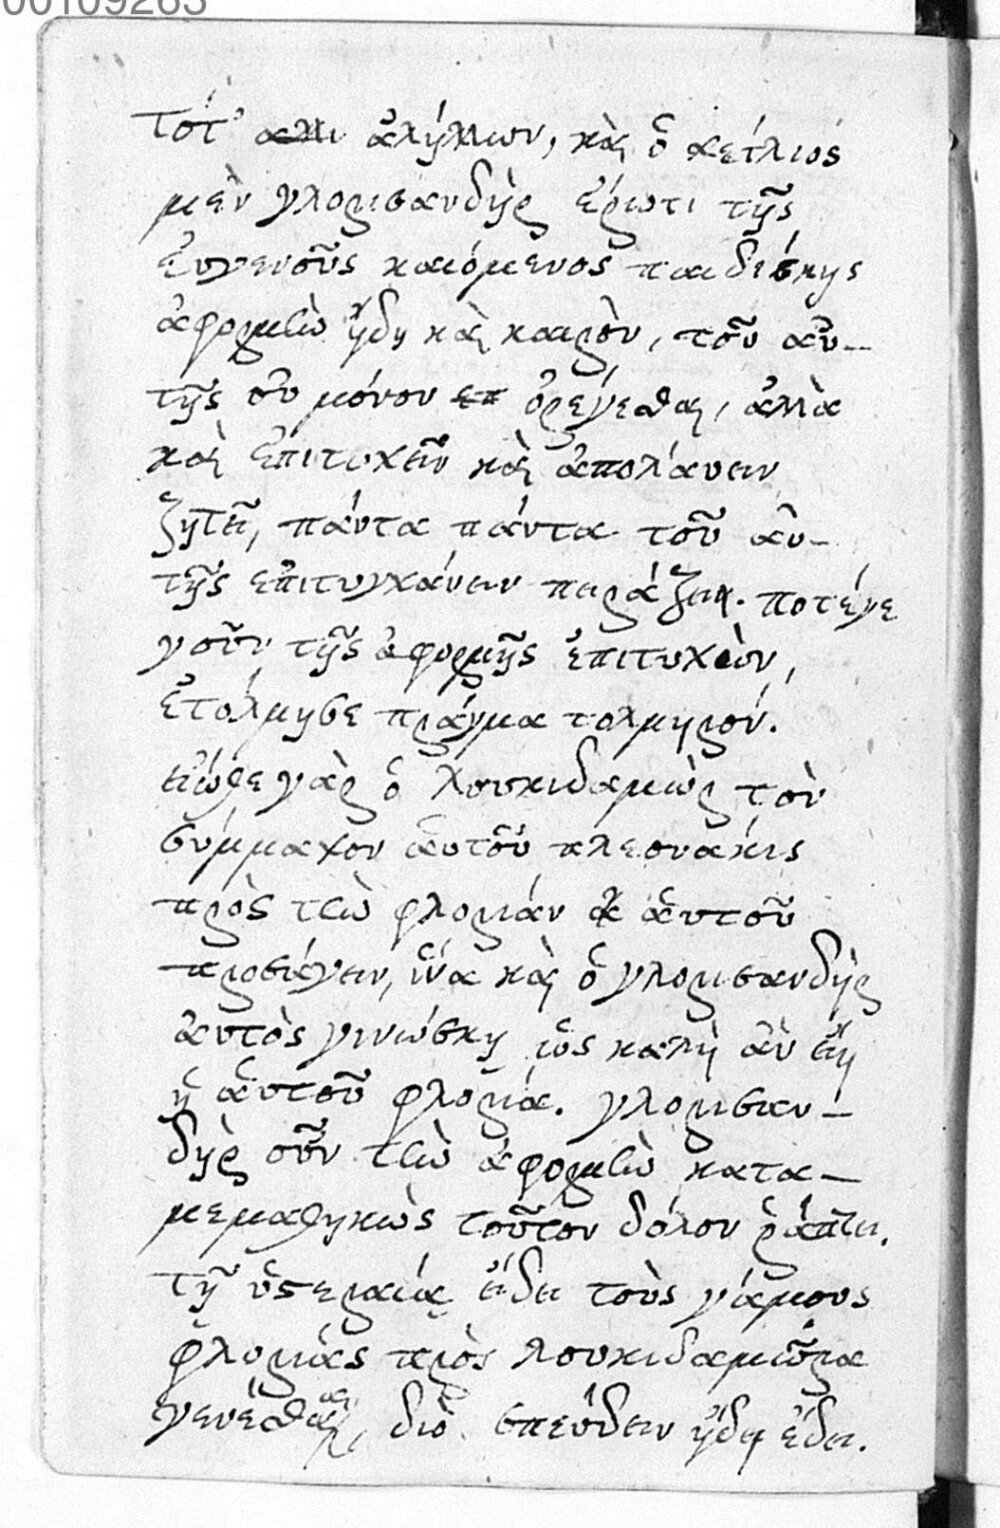 00109263
Τότ' ἀλλήλων, καὶ ὁ σχέτλιος
μὲν γλορισανδὴρ ἔρωτι τῆς
εὐγενοῦς καιόμενος παιδίσκης
ἀφορμὴν ἤδη καὶ καιρὸν, τοῦ αὐ-
τῆς οὐ μόνον ὀρέγεσθαι, ἀλλὰ
καὶ ἐπιτυχεῖν καὶ ἀπολάυειν
ζητεῖ, πάντα πάντα τοῦ αὐ-
τῆς ἐπιτυγχάνειν πειράζει. ποτέγε
γοῦν τῆς ἀφορμῆς ἐπιτυχὼν,
ἐτόλμησε πράγμα τολμηρόν.
εἴωθε γὰρ ὁ λουκιδαμὼρ τὸν
σύμμαχον ἁυτοῦ πλεονάκις
πρὸς τὴν φλοριάν ἁυτοῦ
προσάγειν, ἵνα καὶ ὁ γλορισανδὴρ
ἀυτὸς γινώσκῃ ὡς καλὴ ἂν εἴη
ἡ ἁυτοῦ φλοριά. γλορισαν-
δὴρ οὖν τὴν ἀφορμὴν κατα-
μεμαθηκὼς τοῦτον δόλον ῥάπτει.
τῇ ὑστεραίᾳ ἔδει τοὺς γάμους
φλοριᾶς πρὸς λουκιδαμῶρα
γενέσθαι, διὸ σπεύδειν ἤδη ἔδει.